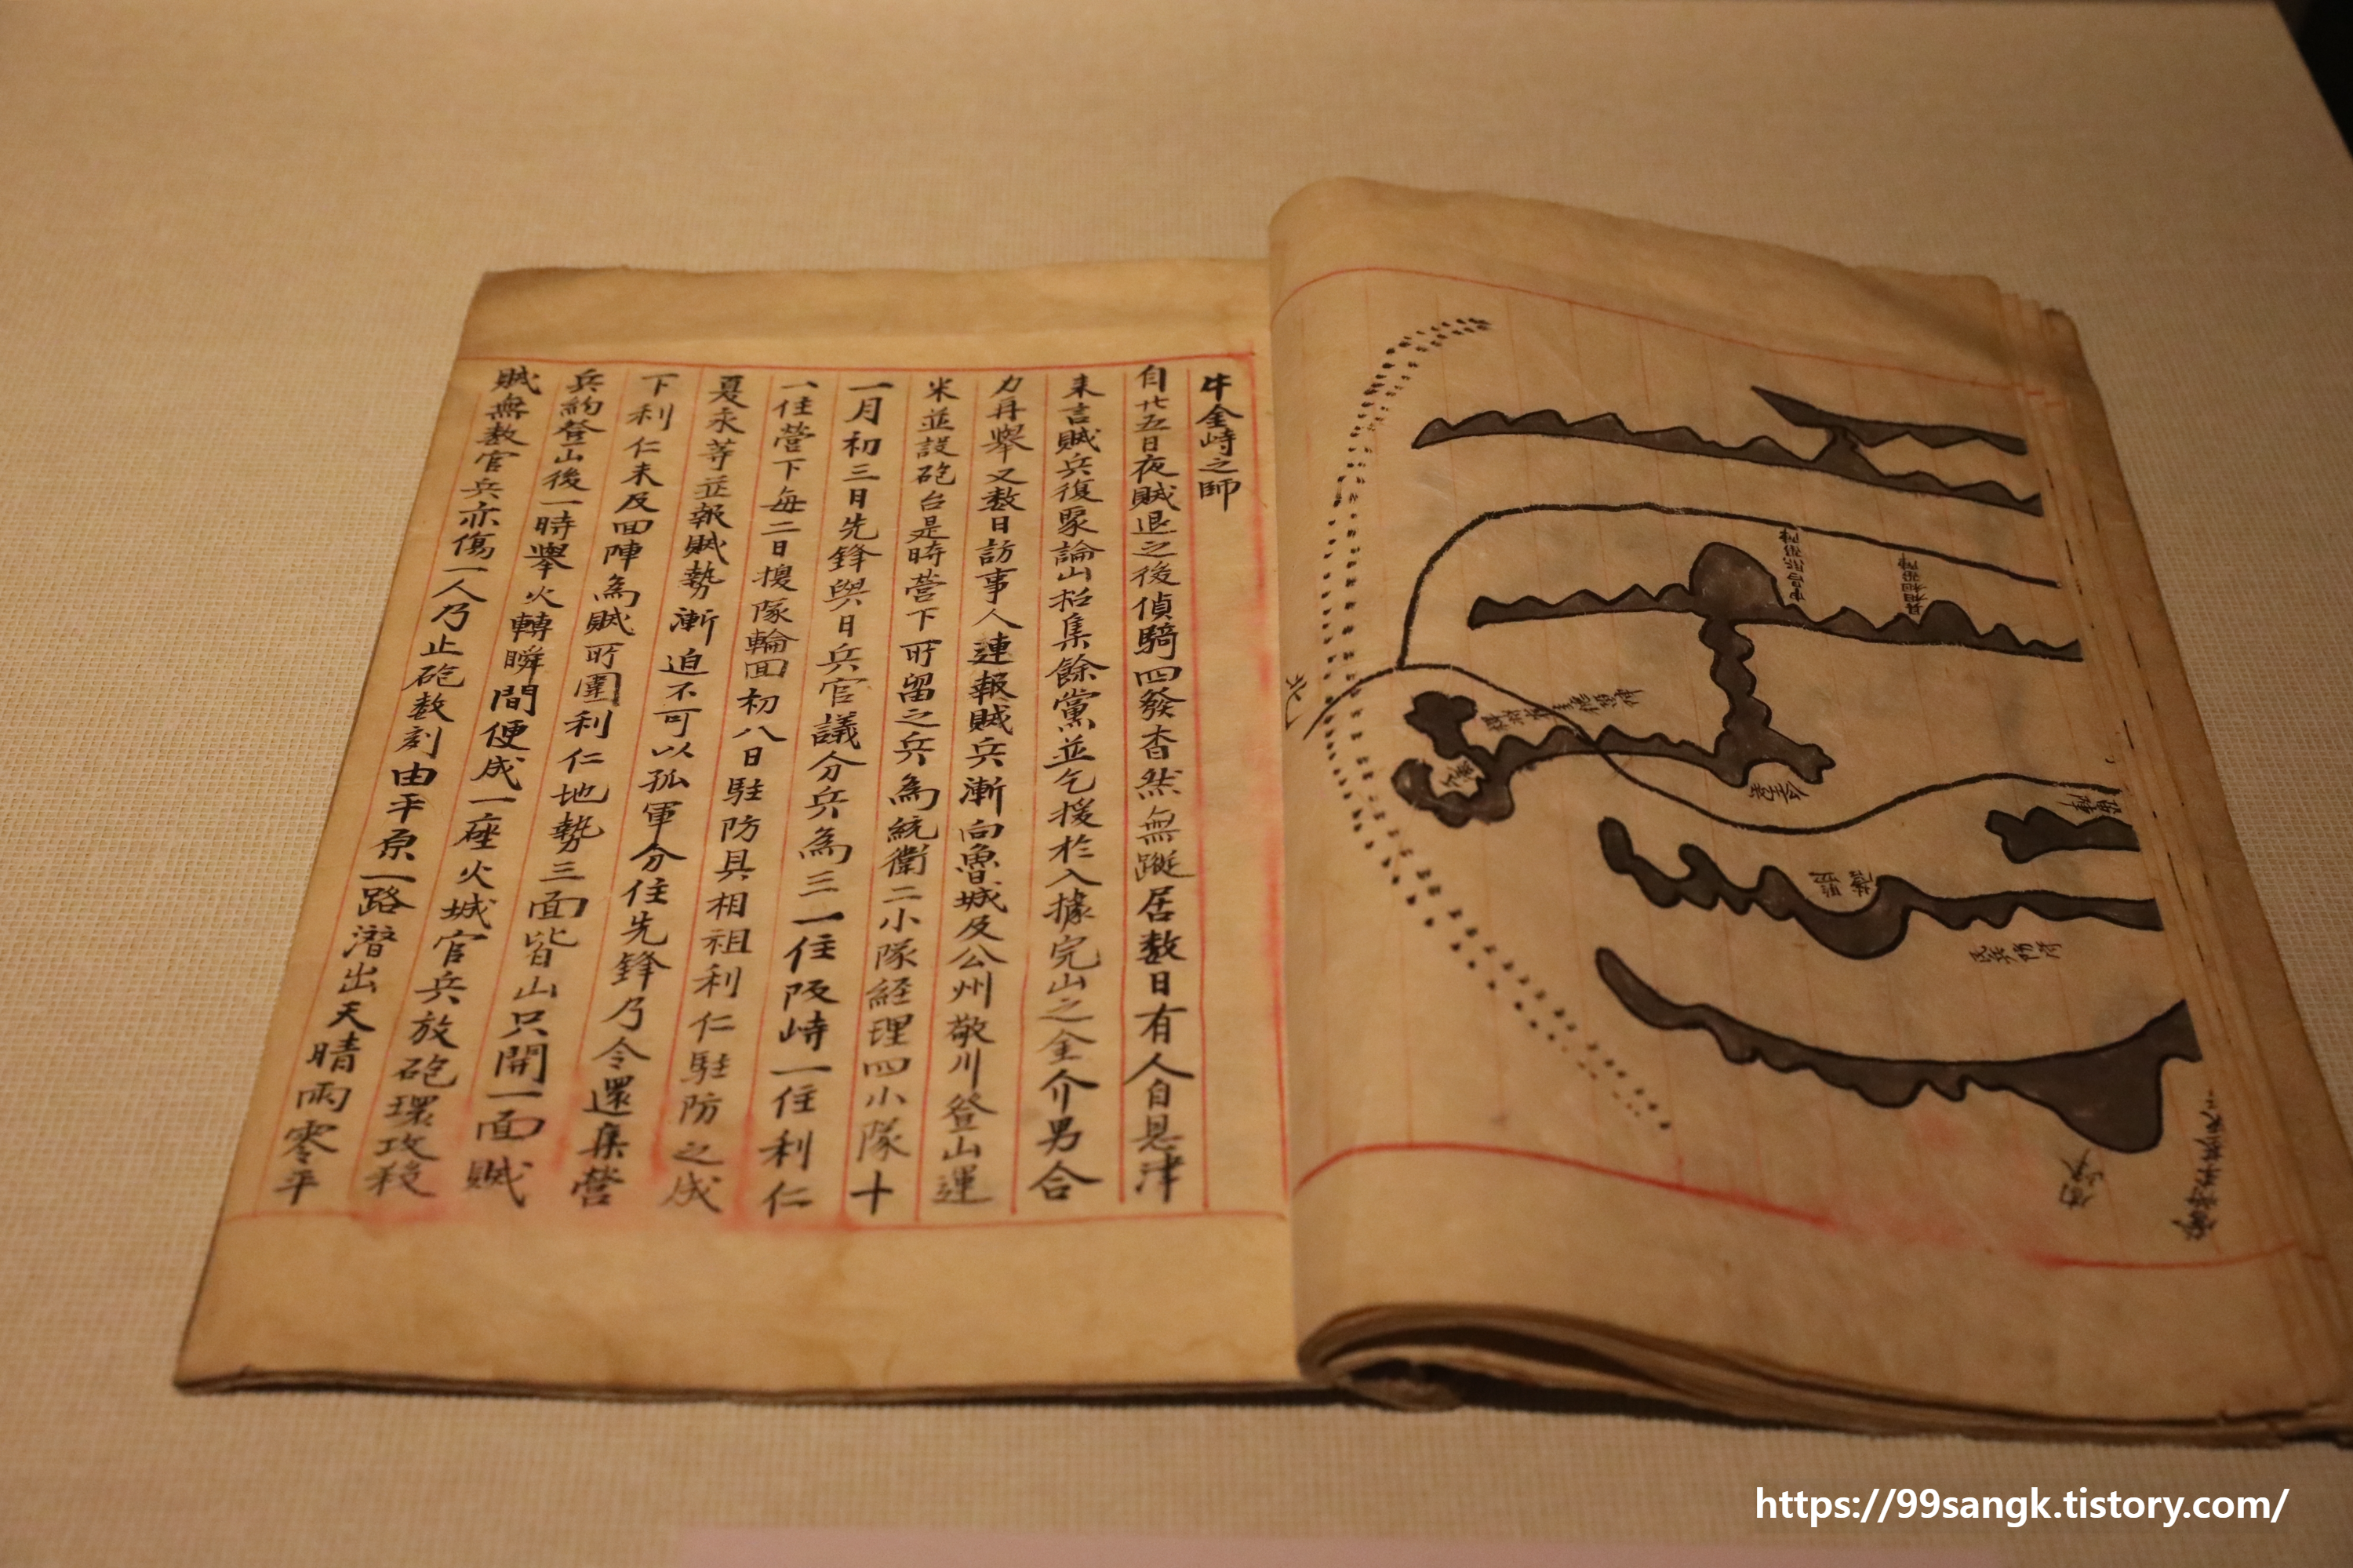 牛金峙之師
自廿五日夜賊退之後偵騎四發杳然無蹤居数日有人自恩津
来言賊兵復聚論山招集餘黨並乞援於入據完山之全介男合
力再舉又数日訪事人連報賊兵漸向魯城及公州敬川登山運
米並設砲台是時營下所留之兵為統衛二小隊経理四小隊十
一月初三日先鋒與日兵官議分兵為三一住阪峙一住利仁
一住營下每二日換隊輪回初八日駐防具相祖利仁駐防之成
夏永等並報賊勢漸迫不可以孤軍分住先鋒乃令還集營
下利仁未及回陣為賊所圍利仁地勢三面皆山只開一面賊
兵約登山後一時舉火轉瞬間便成一座火城官兵放砲環攻殺
賊無数官兵亦傷一人乃止砲数刻由平原一路潛出天晴雨零平
https://99sangk.tistory.com/